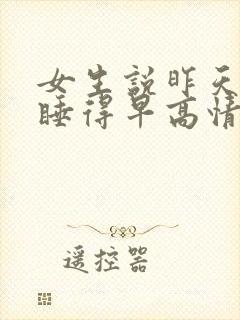 女生説昨天
睡得早高情
遥控器